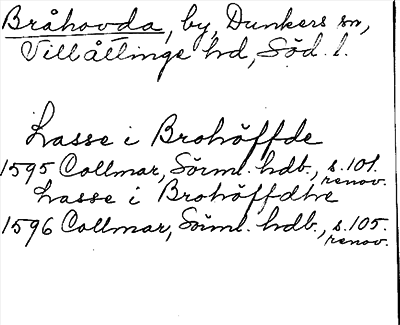 Bråhovda, by, Dunkers sn,
Villåttinge hd, Söd. l.
Lasse i Brohöffde
1595 Collmar, Sörml. hdb., s. 101.
renov.
Lasse i Brohöffdhe
1596 Collmar, Sörml. hdb., s. 105.
renov.